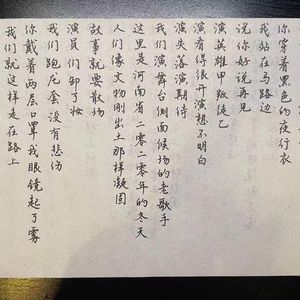 你穿着黑色的夜行衣
我站在马路边
说你好说再见
演英雄甲叛徒乙
演看得很开演想不明白
演失落演期待
我们演舞台侧面候场的老歌手
这里是河南省二零二零年的冬天
人们像文物刚出土那样凝固
故事就要散场
演员们卸了妆
我们跑龙套没有悲伤
你戴着两层口罩我眼镜起了雾
我们就这样走在路上